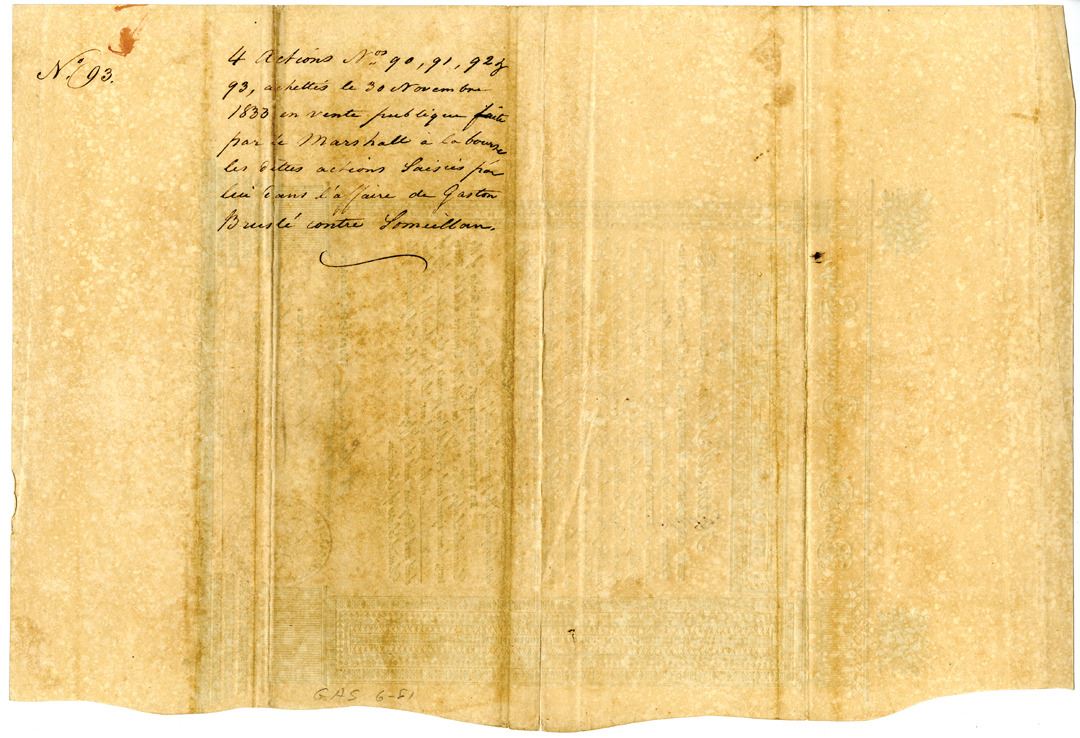 No. 93.
4 Actions Nos 90, 91, 92 &
93, achettés le 30 Novembre
1833 en vente publique faite
par le Marshall à la bourse
les dittes actions Saisies par
lui dans l'affaire de Gaston
Bruslé contre Someillan.
GAS 6-81